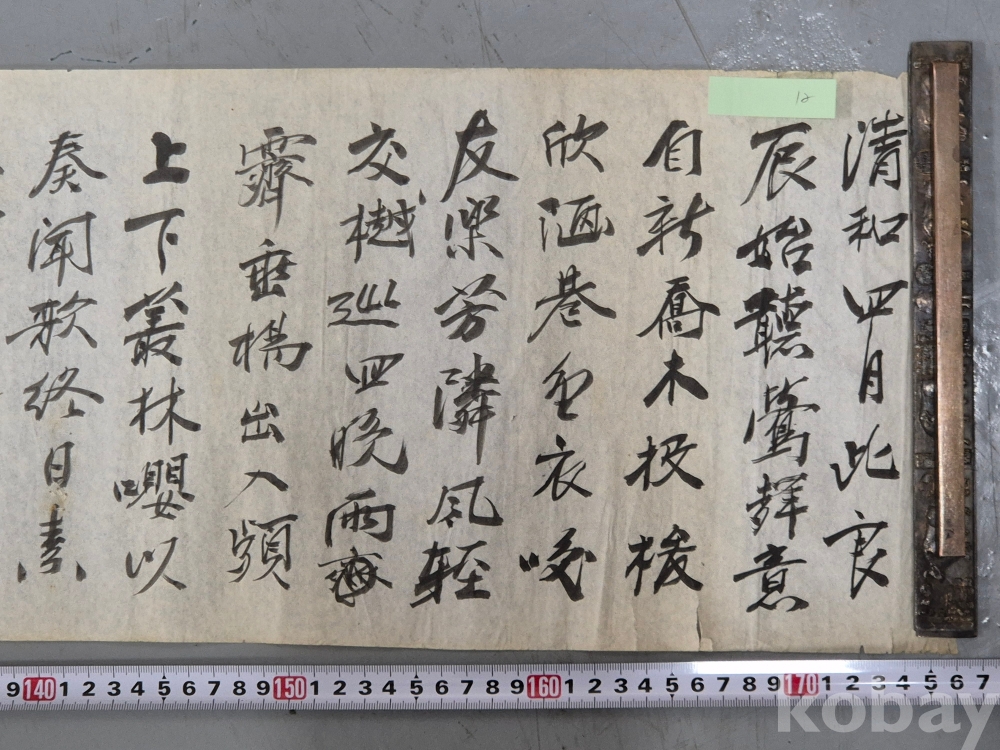 清和四月此良
辰始聽鶯鋅意
自新喬木投梭
欣迤巷金衣咬
友樂芳隣風輕
交樾巡四晚雨霽
霽垂楊出入頻
上下叢林嚶以
奏聞歌終日素
12
9 140 1 2 3 4 5 6 7 8 9 150 1 2 3 4 5 6 7 8 9 160 1 2 3 4 5 6 7 8 9 170 1 2 3 4 5 6 7
kobay